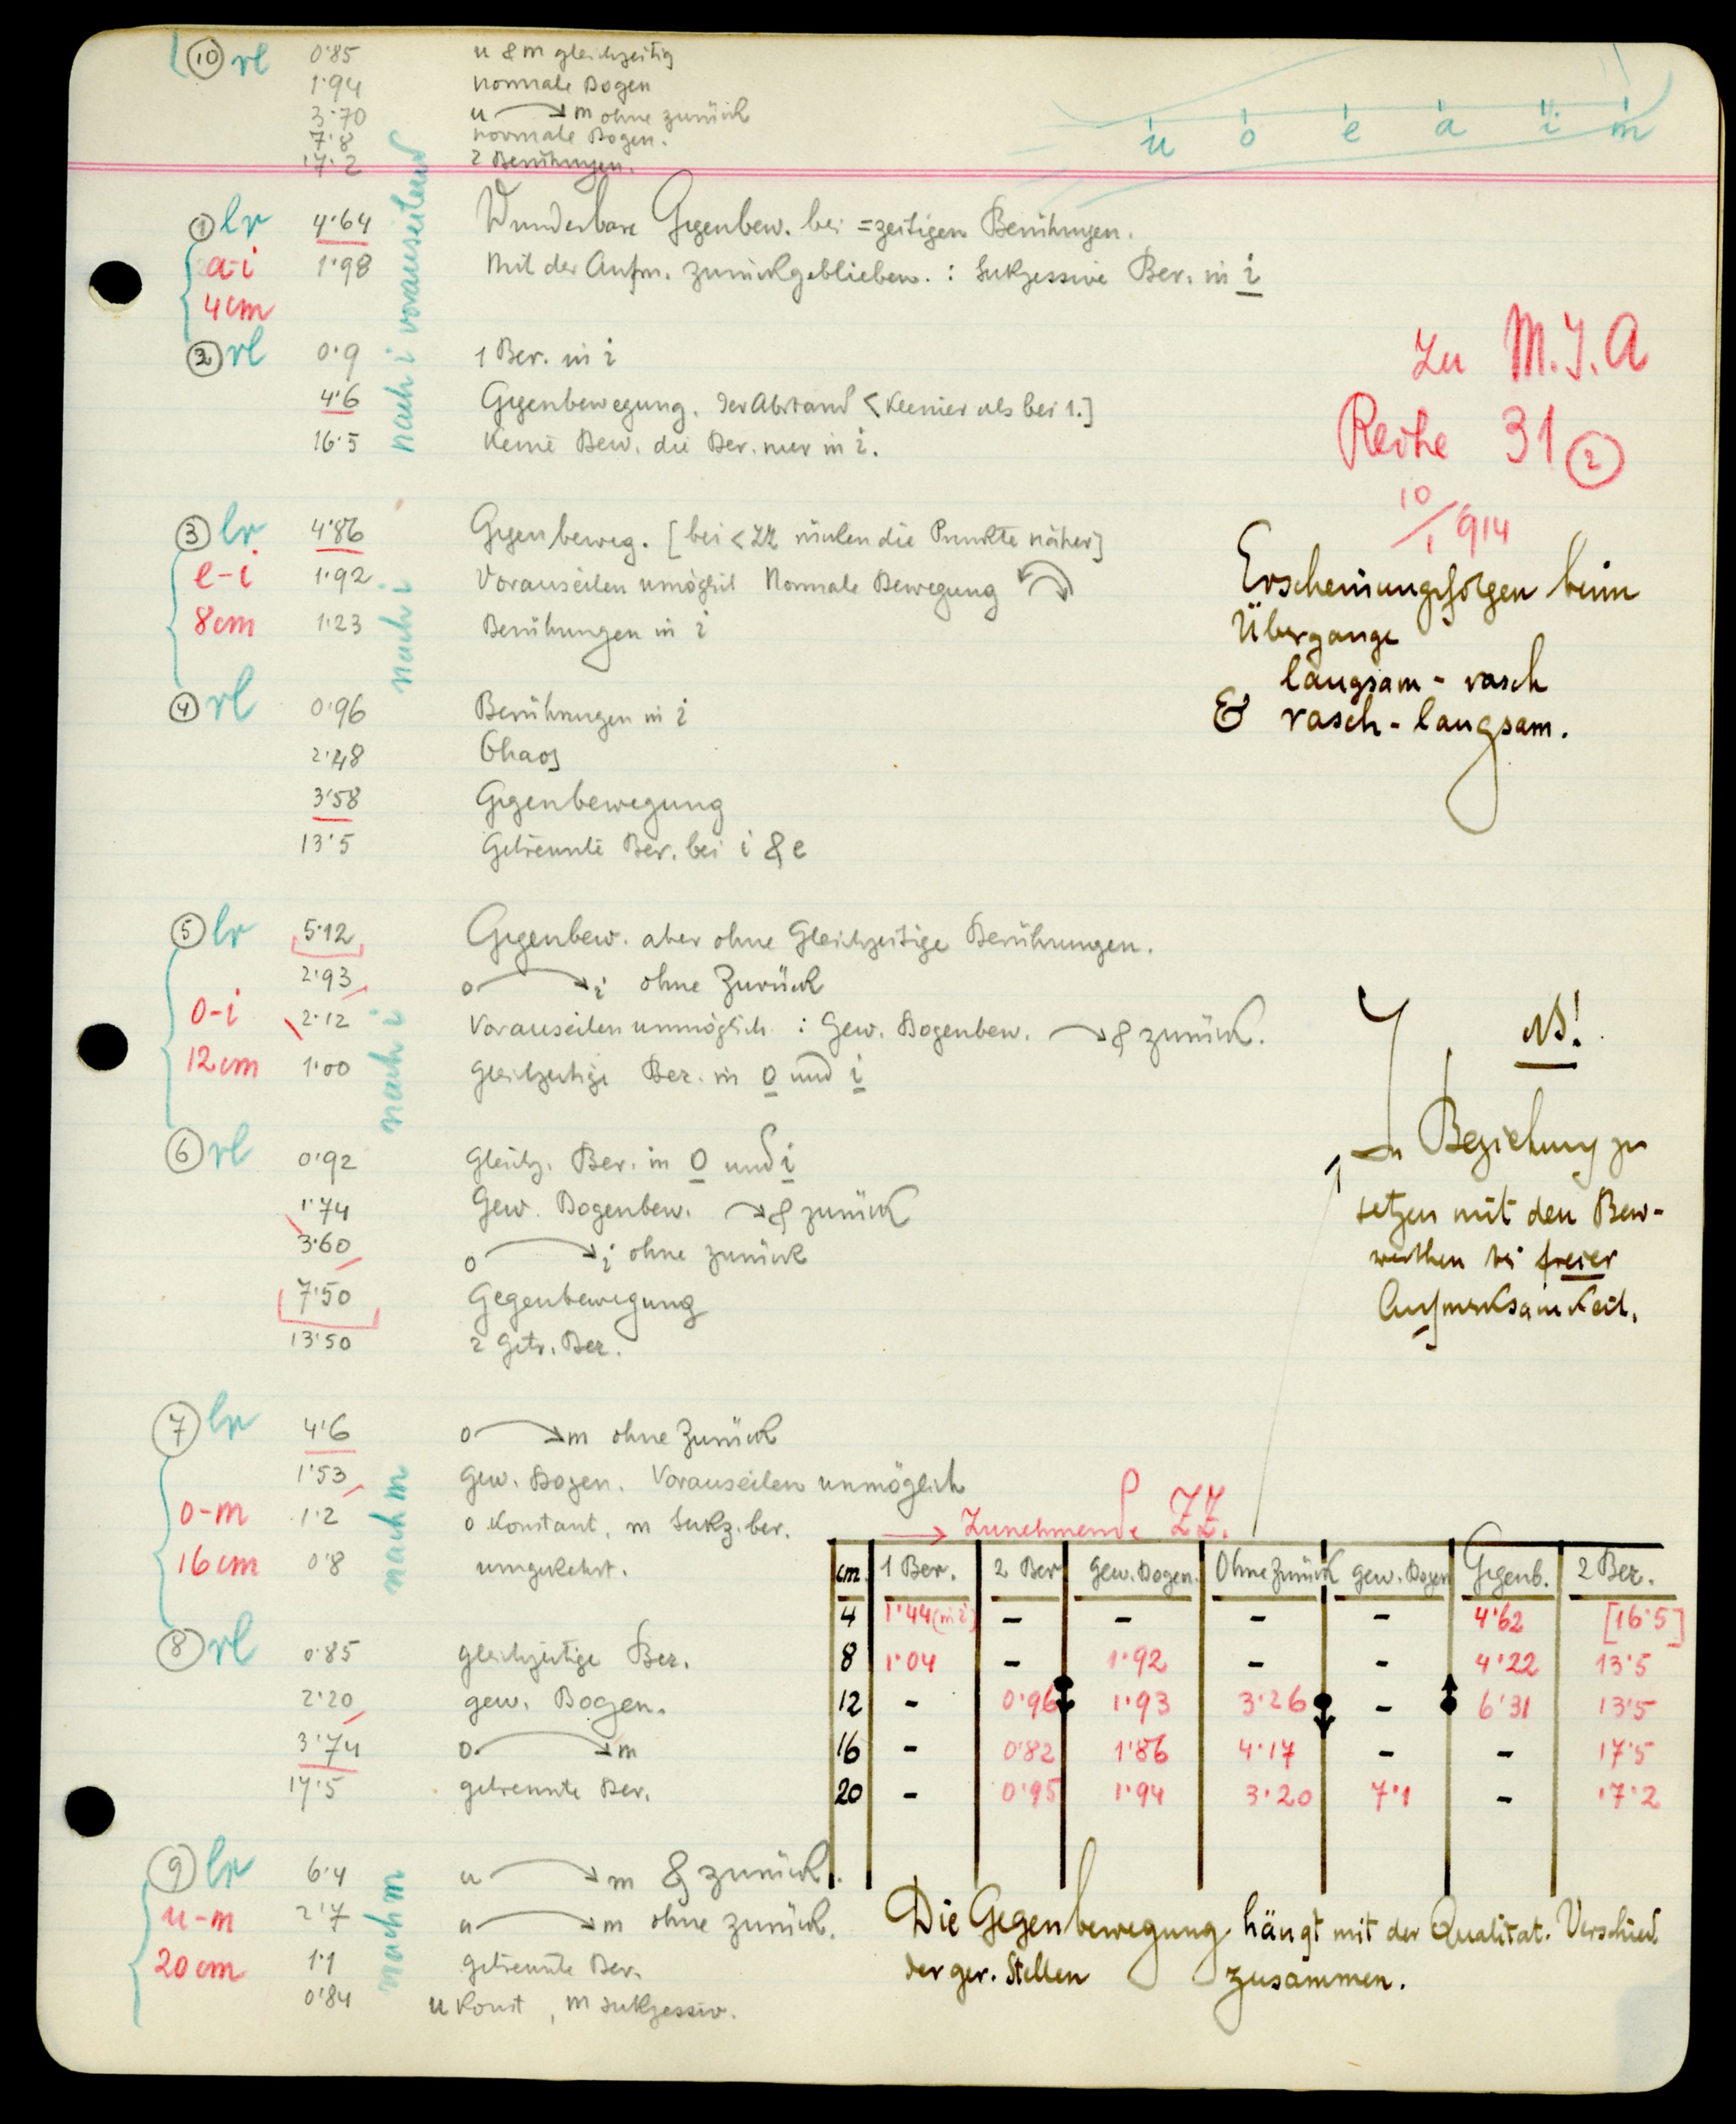 10 rl 0·85 u & m gleichzeitig
1·94 normale Bogen
3·70 u → m ohne zurück
7·8 normale Bogen.
17·2 2 Berührungen.
u o e a i m
nach i vorauseilend
1 lr 4·64 Wunderbare Gegenbew. bei =zeitigen Berührungen.
a-i 1·98 Mit der Aufm. zurückgeblieben. : Sukzessive Ber. in i
4cm
2 rl 0·9 1 Ber. in i
4·6 Gegenbewegung. Der Abstand < kleiner als bei 1.]
16·5 Keine Bew. die Ber. nur in i.
Zu M.J.A
Reihe 31 2
10/1 914
Erscheinungsfolgen beim
Übergange
langsam - rasch
& rasch - langsam.
3 lr 4·86 Gegenbeweg. [bei < ZZ rücken die Punkte näher]
e-i 1·92 Vorauseilen unmöglich Normale Bewegung
8cm 1·23 Berührungen in i
nach i
4 rl 0·96 Berührungen in i
2·48 Chaos
3·58 Gegenbewegung
13·5 Getrennte Ber. bei i & e
5 lr 5·12 Gegenbew. aber ohne Gleichzeitige Berührungen.
2·93 o → i ohne Zurück
o-i 2·12 Vorauseilen unmöglich : Gew. Bogenbew. → & zurück.
12cm 1·00 Gleichzeitige Ber. in o und i
nach i
6 rl 0·92 Gleichz. Ber. in o und i
1·74 Gew. Bogenbew. → & zurück
3·60 o → i ohne zurück
7·50 Gegenbewegung
13·50 2 Getr. Ber.
NB!
In Beziehung zu
setzen mit den Bew-
werthen bei freier
Aufmerksamkeit.
7 lr 4·6 o → m ohne Zurück
1·53 Gew. Bogen. Vorauseilen unmöglich
o-m 1·2 o Konstant, m Sukz. ber.
16cm 0·8 umgekehrt.
nach m
8 rl 0·85 gleichzeitige Ber.
2·20 gew. Bogen.
3·74 o → m
17·5 getrennte Ber.
→ Zunehmende ZZ.
cm 1 Ber. 2 Ber gew. Bogen. Ohne Zurück gew. Bogen Gegenb. 2 Ber.
4 1·44 (in i) - - - - 4·62 [16·5]
8 1·04 - 1·92 - - 4·22 13·5
12 - 0·96 1·93 3·26 - 6·31 13·5
16 - 0·82 1·86 4·17 - - 17·5
20 - 0·95 1·94 3·20 7·1 - 17·2
9 lr 6·4 u → m & zurück.
u-m 2·7 u → m ohne zurück.
20cm 1·1 getrennte Ber.
0·84 u konst, m sukzessiv.
nach m
Die Gegenbewegung hängt mit der Qualitat. Verschied
der ger. Stellen zusammen.